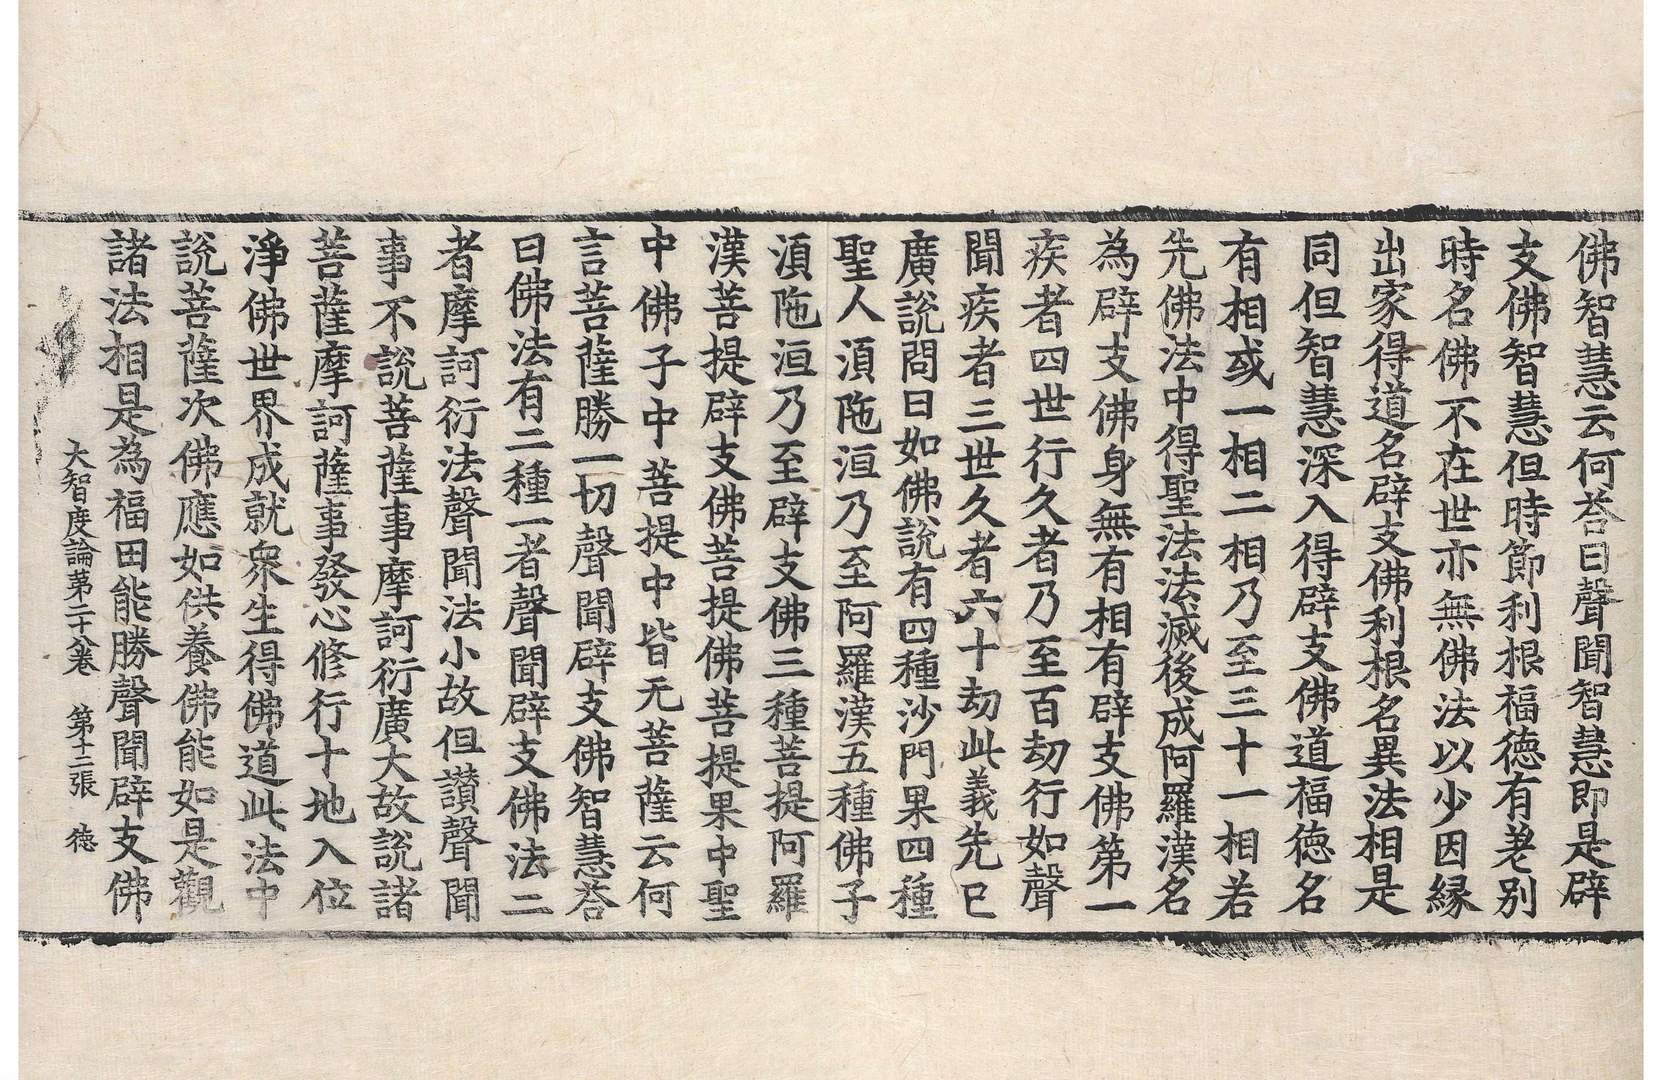 佛智慧云何荅曰聲聞智慧即是辟
支佛智慧但時節利根福德有差別
時名佛不在世亦無佛法以少因緣
出家得道名辟支佛利根名異法相是
同但智慧深入得辟支佛道福德名
有相或一相二相乃至三十一相若
先佛法中得聖法法滅後成阿羅漢名
為辟支佛身無有相有辟支佛第一
疾者四世行久者乃至百劫行如聲
聞疾者三世久者六十劫此義先已
廣說問曰如佛說有四種沙門果四種
聖人湏陁洹乃至阿羅漢五種佛子
湏陁洹乃至辟支佛三種菩提阿羅
漢菩提辟支佛菩提佛菩提果中聖
中佛子中菩提中皆无菩薩云何
言菩薩勝一切聲聞辟支佛智慧荅
曰佛法有二種一者聲聞辟支佛法二
者摩訶衍法聲聞法小故但讚聲聞
事不說菩薩事摩訶衍廣大故說諸
菩薩摩訶薩事發心修行十地入位
淨佛世界成就衆生得佛道此法中
說菩薩次佛應如供養佛能如是觀
諸法相是為福田能勝聲聞辟支佛
大智度論第二十八卷 第十二張 德